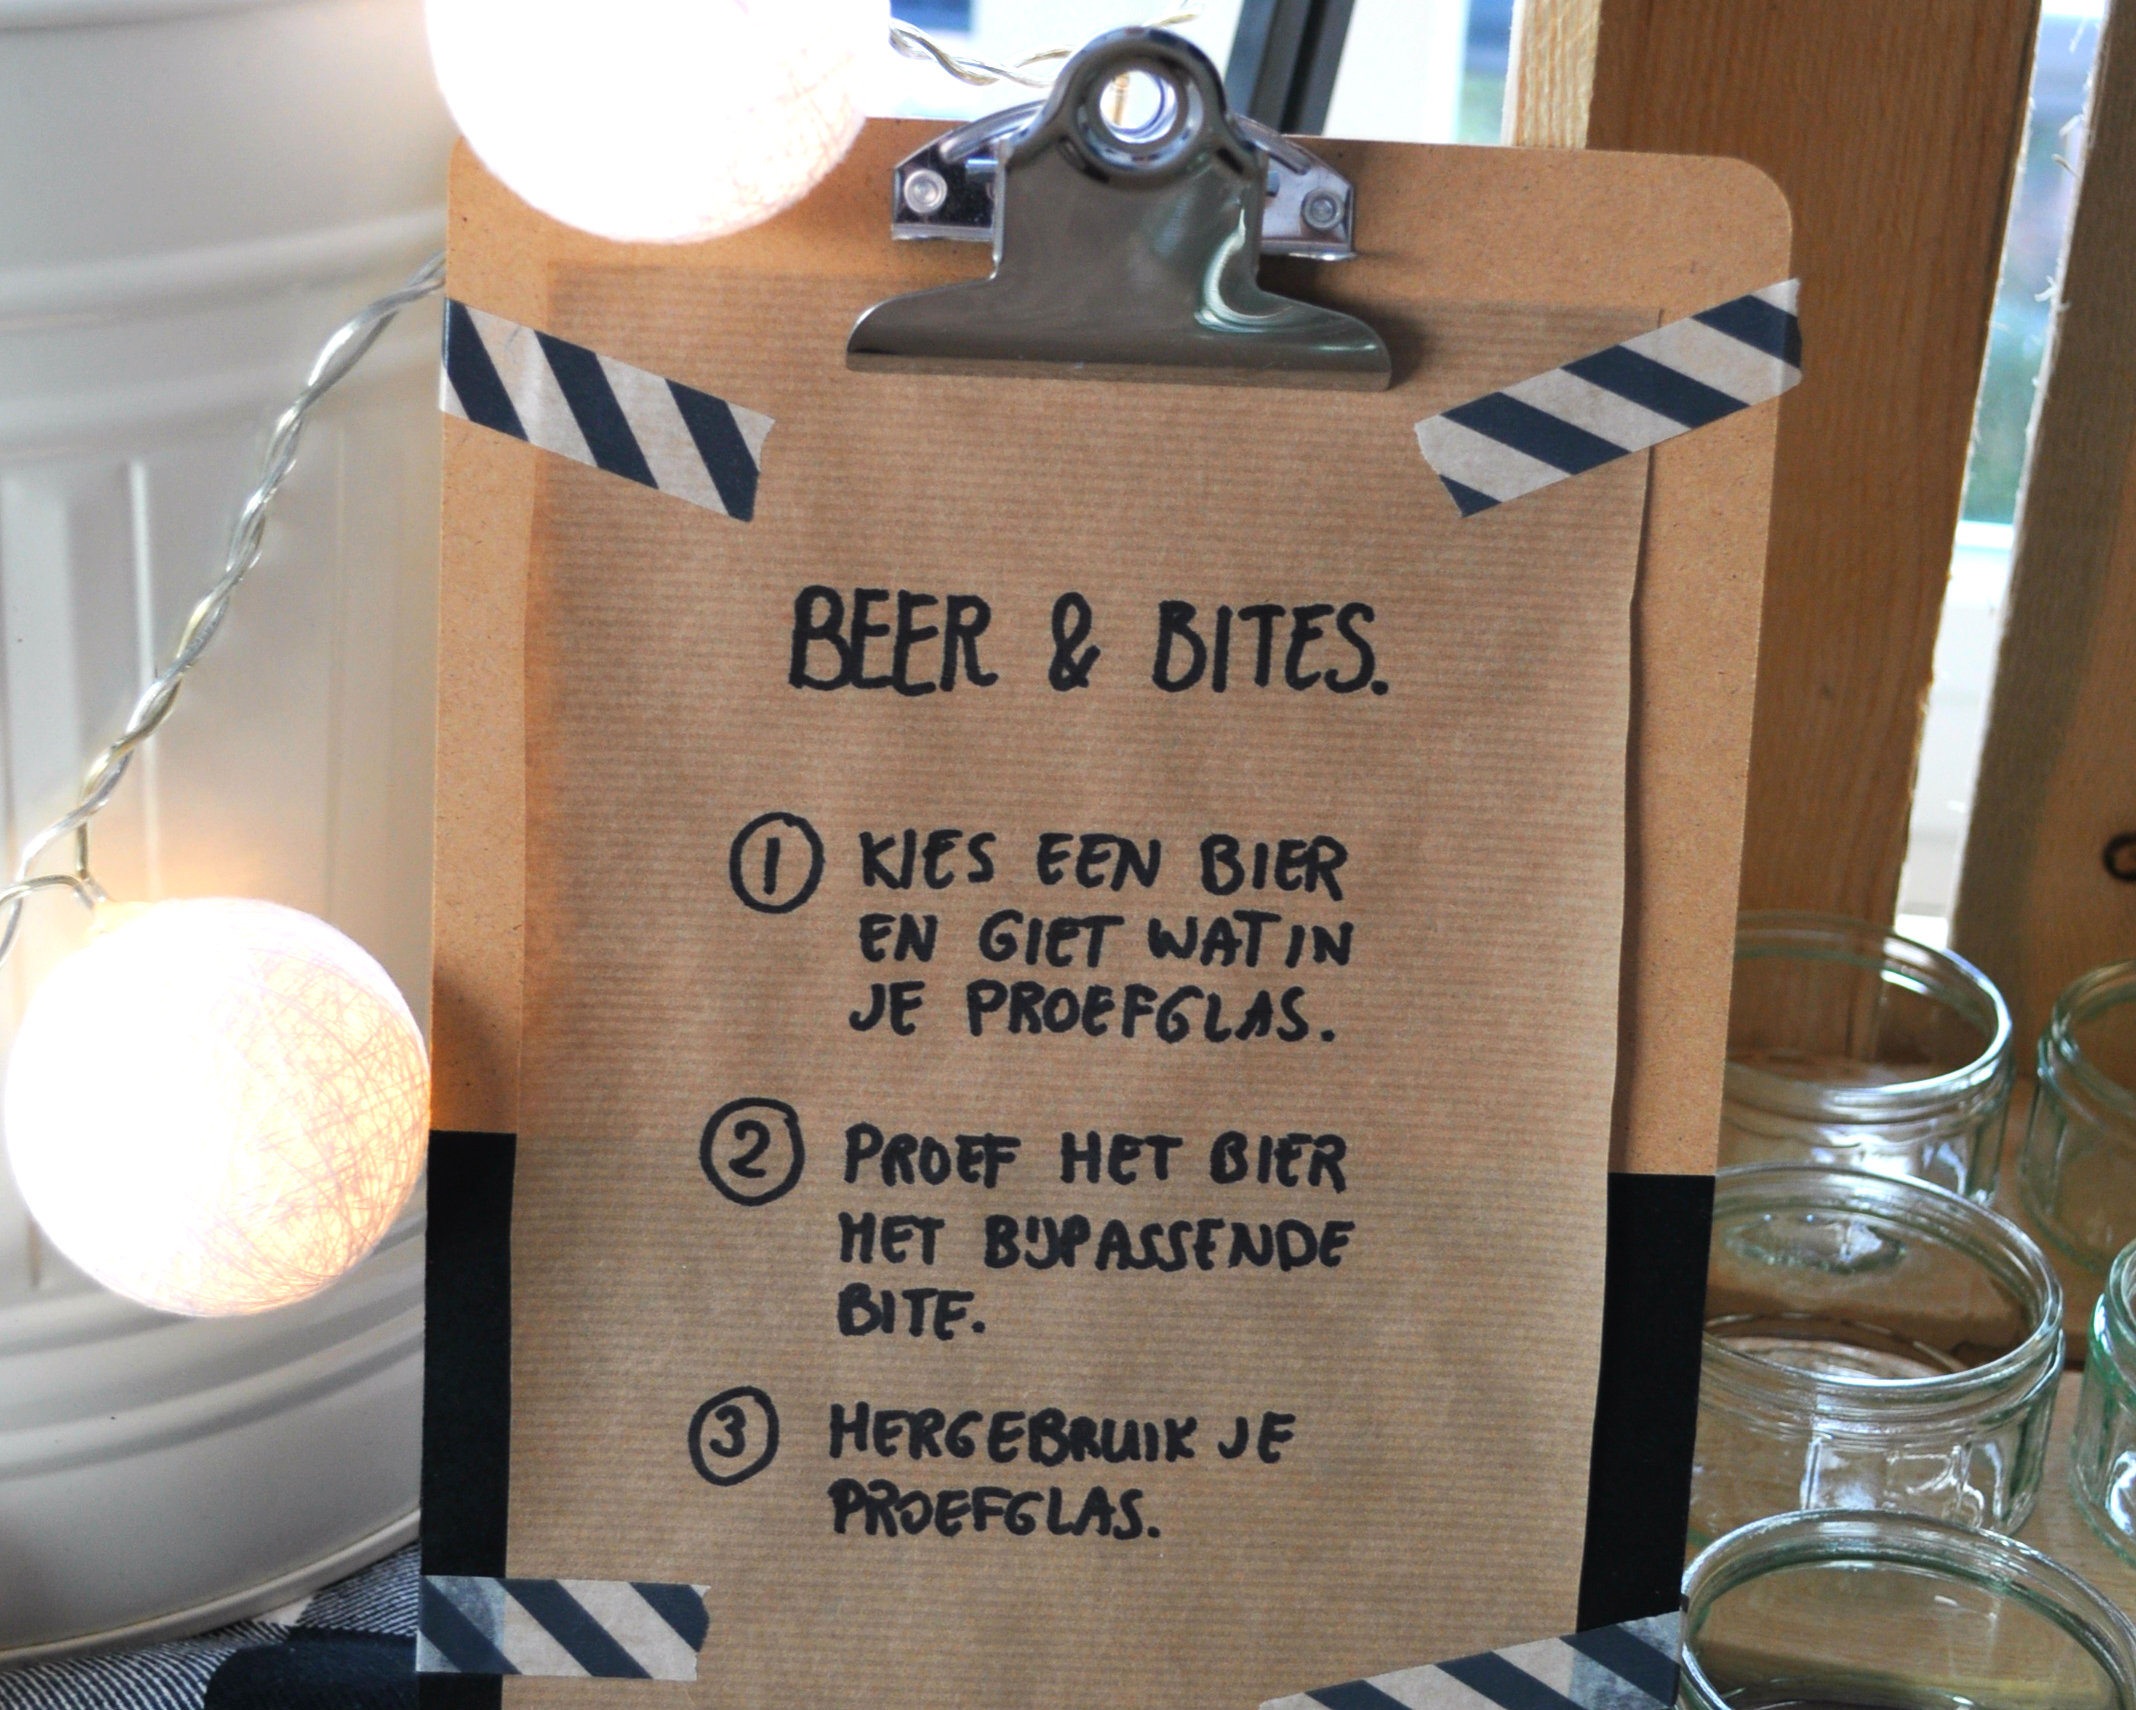 BEER & BITES.
1 KIES EEN BIER
EN GIET WAT IN
JE PROEFGLAS.
2 PROEF HET BIER
MET BIJPASSENDE
BITE.
3 HERGEBRUIK JE
PROEFGLAS.